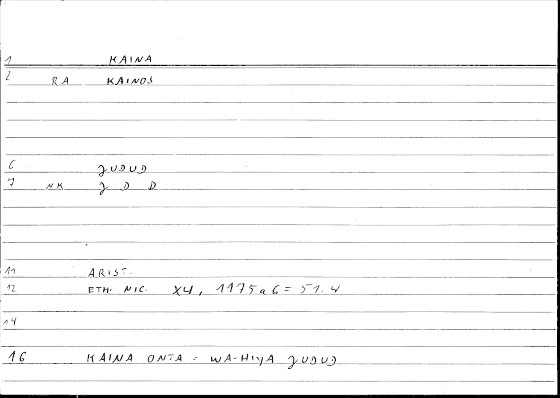 1 KAINA
2 RA KAINOS
6 ʒUDUD
7 NK ʒ D D
11 ARIST.
12 ETH. NIC. X4, 1175a6 = 51.4
14
16 KAINA ONTA = WA-HIYA ʒUDUD